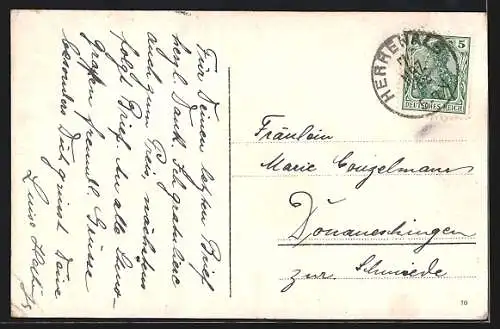 Für Deinen letzten Brief
herzl. Dank. Ich gratuliere
auch zum Preis, nächstens
folgt Brief. An alle Haus-
grossen freundl. Grüsse
besonders Dich grüsst Deine
Luise
HERRENALB
5
DEUTSCHES REICH
Fräulein
Marie Conzelmann
Donaueschingen
zur Schmiede
70